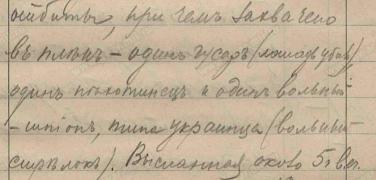 отбиты, при чемъ захвачено
въ плѣнъ - одинъ гусаръ (лошадь убита),
одинъ пѣхотинецъ и одинъ вольный
- шпіонъ, типа украинца (вольный
стрѣлокъ). Высланная около 5 в.